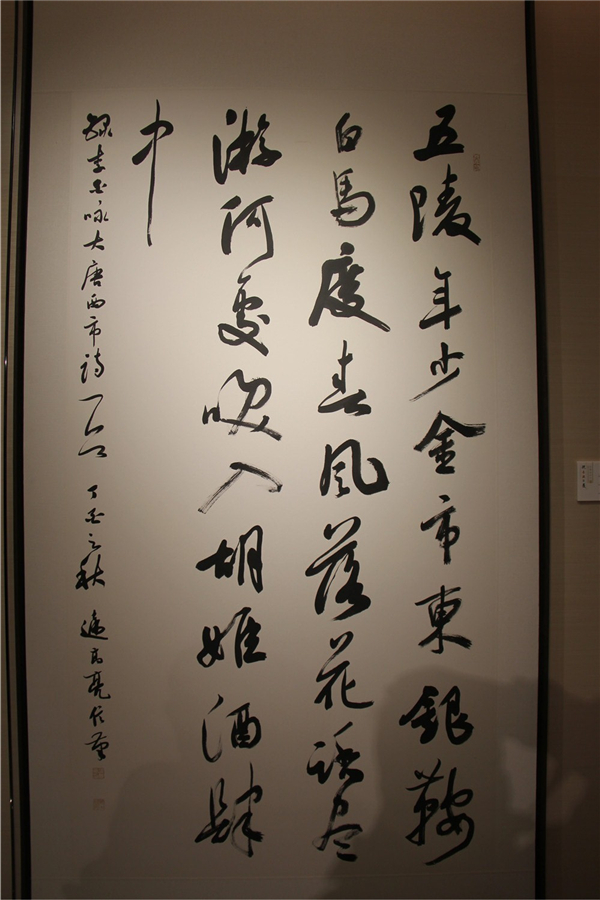 五陵年少金市東銀鞍
白馬度春風落花踏尽
游何處咲入胡姬酒肆
中
録李白咏大唐西市詩一首 丁酉之秋 高亮